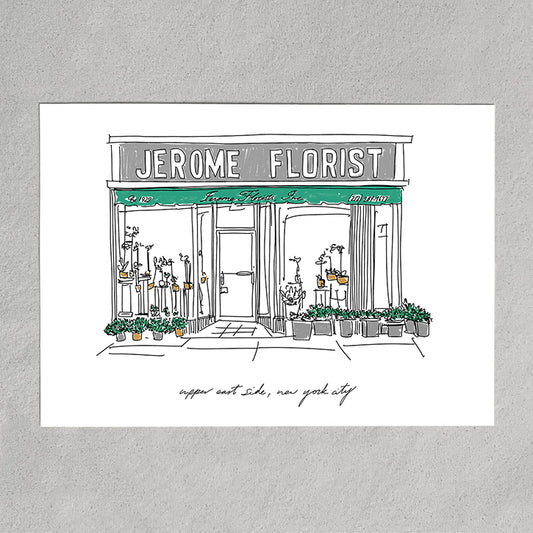 JEROME FLORIST
Jerome Florist Inc
upper east side, new york city